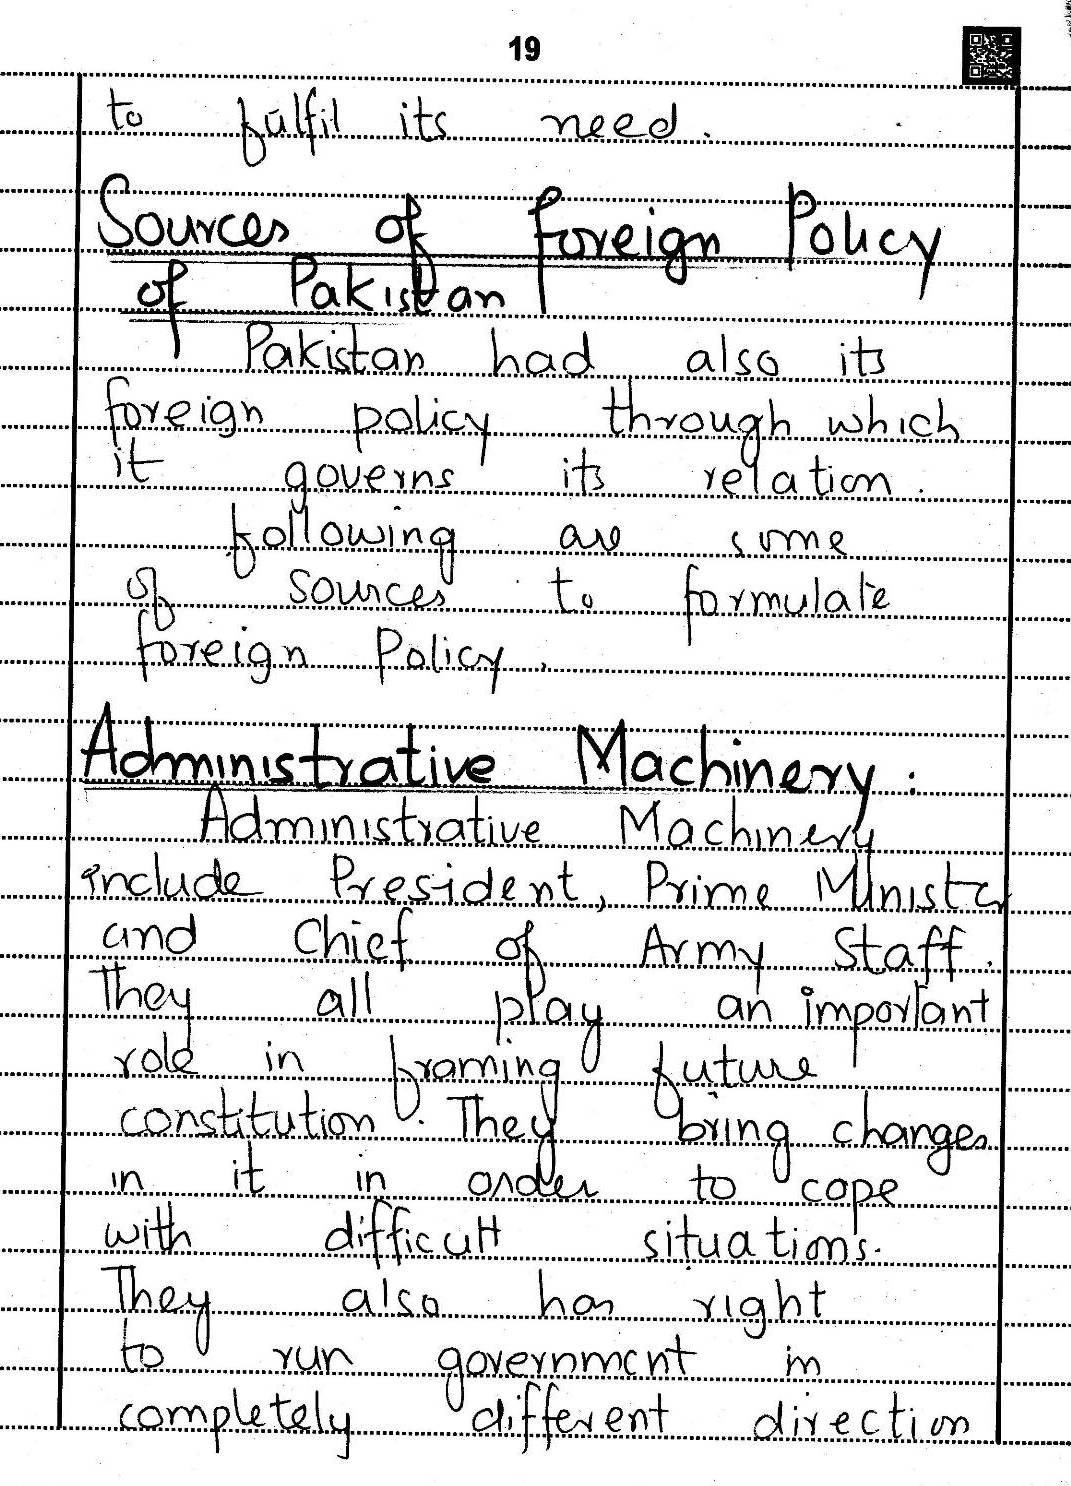 19
to fulfil its need.
Sources of foreign Policy
of Pakistan
Pakistan had also its
foreign policy through which
it governs its relation.
following are some
of sources to formulate
foreign Policy.
Administrative Machinery:
Administrative Machinery
include President, Prime Minister
and Chief of Army Staff.
They all play an important
role in framing future
constitution. They bring changes
in it in order to cope
with difficult situations.
They also has right
to run government in
completely different direction